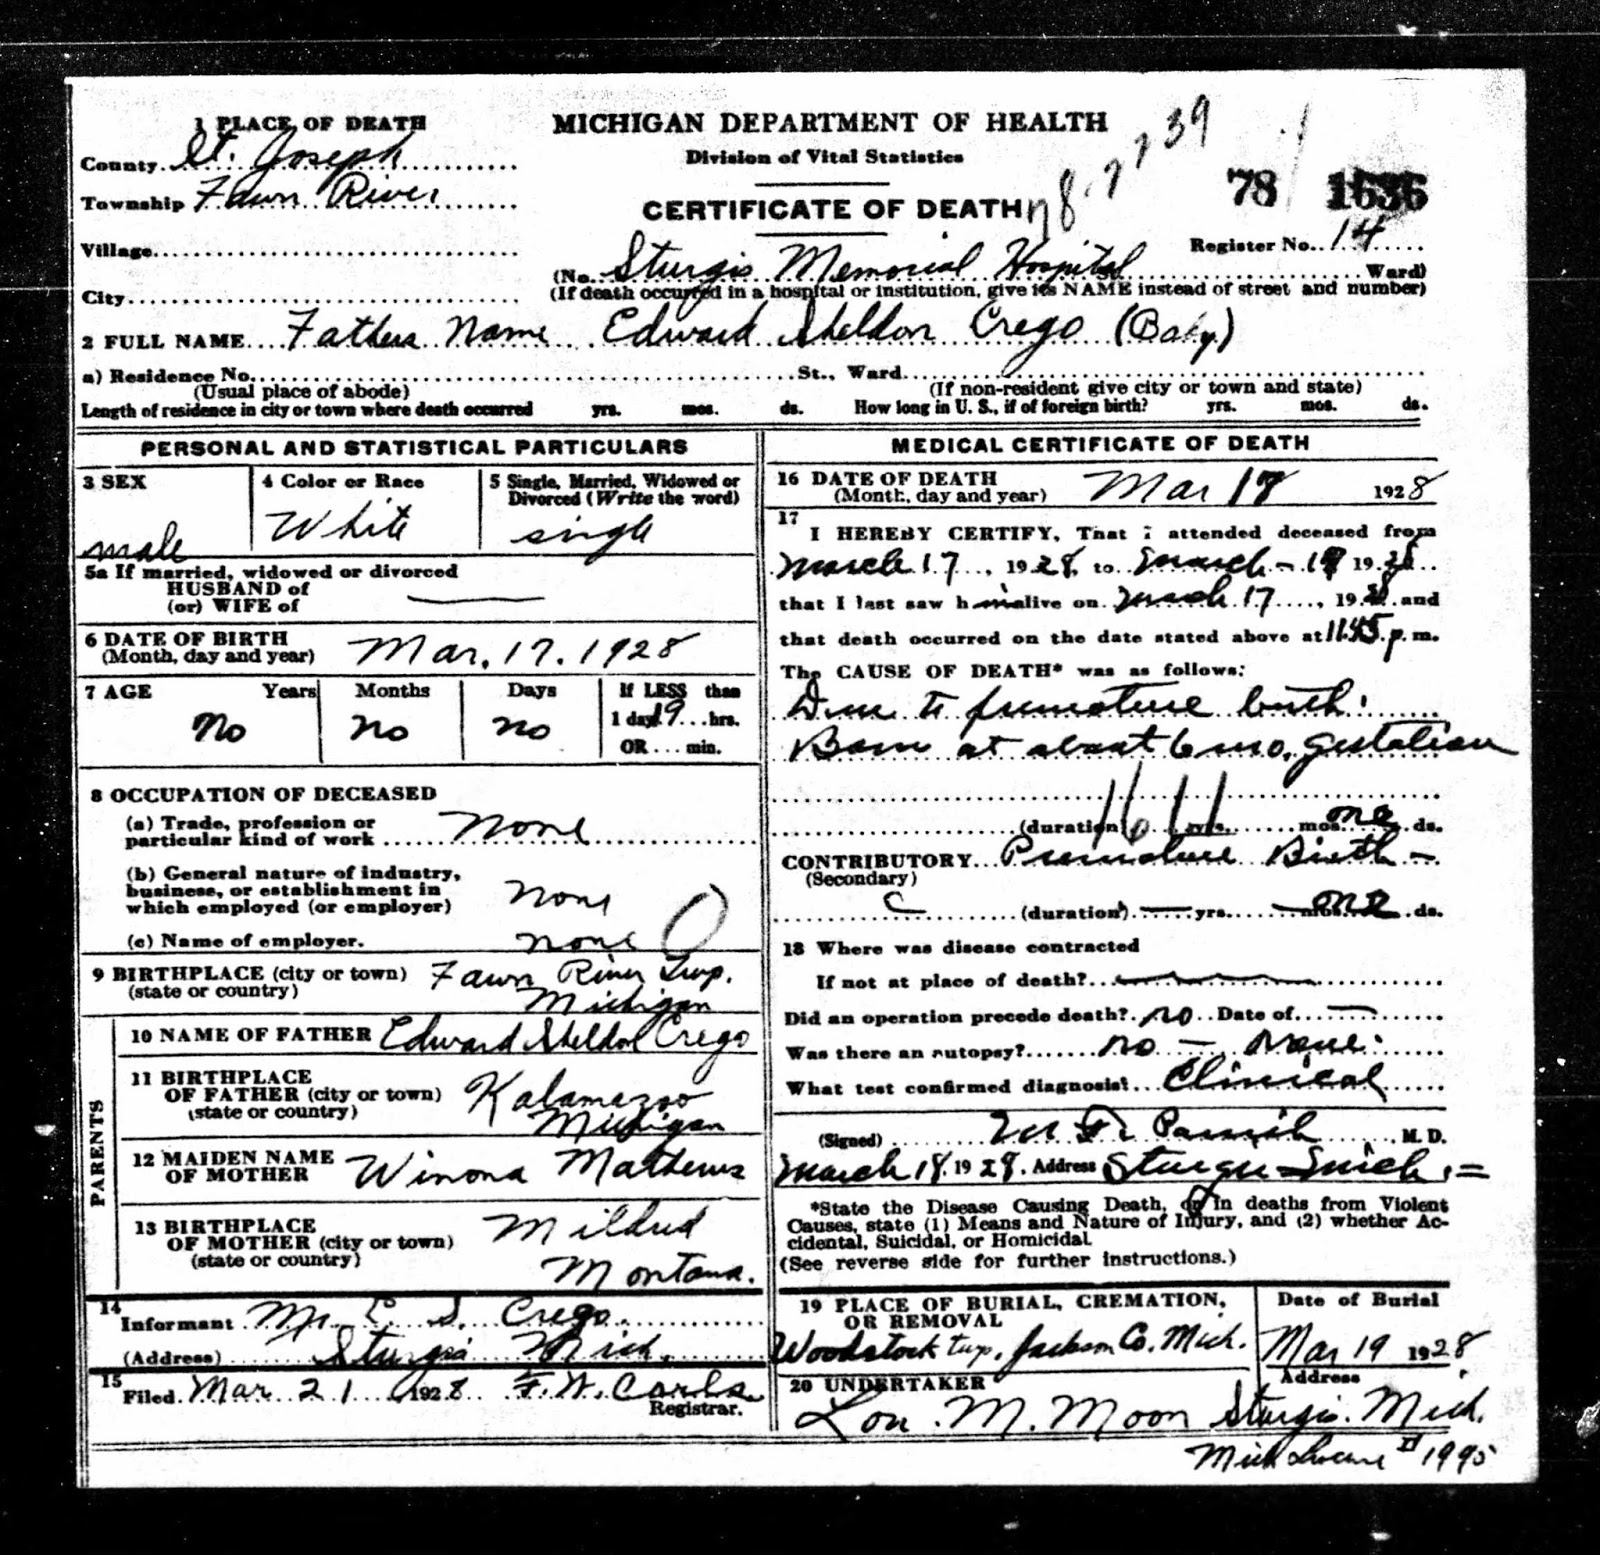 1 PLACE OF DEATH
County St. Joseph
Township Fawn River
Village
City
MICHIGAN DEPARTMENT OF HEALTH
Division of Vital Statistics
CERTIFICATE OF DEATH
78 1636
Register No. 14
(No. Sturgis Memorial Hospital Ward)
(If death occurred in a hospital or institution, give its NAME instead of street and number)
2 FULL NAME Fathers Name Edward Sheldon Crego (Baby)
a) Residence No. St., Ward
(Usual place of abode) (If non-resident give city or town and state)
Length of residence in city or town where death occurred yrs. mos. ds. How long in U. S., if of foreign birth? yrs. mos. ds.
PERSONAL AND STATISTICAL PARTICULARS
3 SEX
male
4 Color or Race
White
5 Single, Married, Widowed or
Divorced (Write the word)
single
5a If married, widowed or divorced
HUSBAND of
(or) WIFE of
6 DATE OF BIRTH
(Month, day and year) Mar. 17. 1928
7 AGE Years Months Days If LESS than
No no no 1 day 19 hrs.
OR min.
8 OCCUPATION OF DECEASED
(a) Trade, profession or
particular kind of work none
(b) General nature of industry,
business, or establishment in
which employed (or employer) none
(c) Name of employer. none
9 BIRTHPLACE (city or town) Fawn River Twp.
(state or country) Michigan
PARENTS
10 NAME OF FATHER Edward Sheldon Crego
11 BIRTHPLACE
OF FATHER (city or town) Kalamazoo
(state or country) Michigan
12 MAIDEN NAME
OF MOTHER Winona Mathews
13 BIRTHPLACE
OF MOTHER (city or town) Mildred
(state or country) Montana.
14
Informant Mr. E. S. Crego.
(Address) Sturgis Mich.
15
Filed Mar 21 1928 F. W.
Registrar.
MEDICAL CERTIFICATE OF DEATH
16 DATE OF DEATH
(Month, day and year) Mar 18 1928
17
I HEREBY CERTIFY, That I attended deceased from
March 17, 1928, to March - 1928
that I last saw him alive on March 17, 1928 and
that death occurred on the date stated above at 11.45 p. m.
The CAUSE OF DEATH* was as follows:
Due to premature birth.
Born at about 6 mo. gestation
(duration) yrs. mos. one ds.
CONTRIBUTORY Premature Birth -
(Secondary)
(duration) — yrs. — mos. one ds.
18 Where was disease contracted
If not at place of death?
Did an operation precede death? no Date of —
Was there an autopsy? no - None.
What test confirmed diagnosis? Clinical
(Signed) Parrish M. D.
March 18. 1928. Address Sturgis - Mich. =
*State the Disease Causing Death, or in deaths from Violent
Causes, state (1) Means and Nature of Injury, and (2) whether Ac-
cidental, Suicidal, or Homicidal.
(See reverse side for further instructions.)
19 PLACE OF BURIAL, CREMATION,
OR REMOVAL
Woodstock twp. Jackson Co. Mich.
Date of Burial
Mar 19 1928
20 UNDERTAKER Address
Lou. M. Moon Sturgis. Mich.
1995